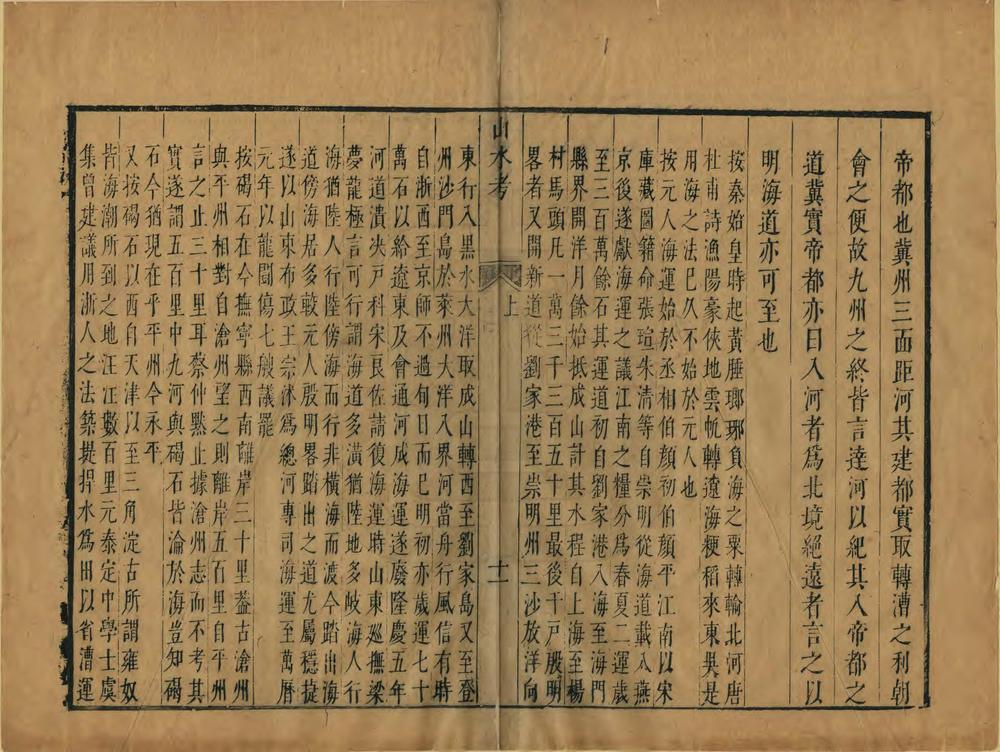 帝都也冀州三面距河其建都實取轉漕之利朝
會之便故九州之終皆言達河以紀其入帝都之
道冀實帝都亦曰入河者爲北境絕遠者言之以
明海道亦可至也
按秦始皇時起黃腄瑯琊負海之粟轉輸北河唐
杜甫詩漁陽豪俠地雲帆轉遼海粳稻來東吳是
用海之法已久不始於元人也
按元人海運始於丞相伯顏初伯顏平江南以宋
庫藏圖籍命張瑄朱清等自崇明從海道載入燕
京後遂獻海運之議江南之糧分爲春夏二運歲
至三百萬餘石其運道初自劉家港入海至海門
縣界開洋月餘始抵成山計其水程自上海至楊
村馬頭凡一萬三千三百五十里最後千戶殷明
畧者又開新道從劉家港至崇明州三沙放洋向
山水考
上
十一
東行入黑水大洋取成山轉西至劉家島又至登
州沙門島於萊州大洋入界河當舟行風信有時
自浙西至京師不過旬日而已明初亦歲運七十
萬石以給遼東及會通河成海運遂廢隆慶五年
河道潰決戸科宋良佐請復海運時山東巡撫梁
夢龍極言可行謂海道多潢猶陸地多岐海人行
海猶陸人行陸傍海而行非橫海而渡今踏出海
道傍海居多較元人殷明畧踏出之道尤屬穩捷
遂以山東布政王宗沐爲總河專司海運至萬曆
元年以龍鬬傷七艘議罷
按碣石在今撫寧縣西南離岸三十里葢古滄州
與平州相對自滄州望之則離岸五百里自平州
言之止三十里耳蔡仲黙止據滄州志而不考其
實遂謂五百里中九河與碣石皆淪於海豈知碣
石今猶現在乎平州今永平
又按碣石以西自天津以至三角淀古所謂雍奴
皆海潮所到之地汪汪數百里元泰定中學士虞
集曾建議用浙人之法築堤捍水爲田以省漕運